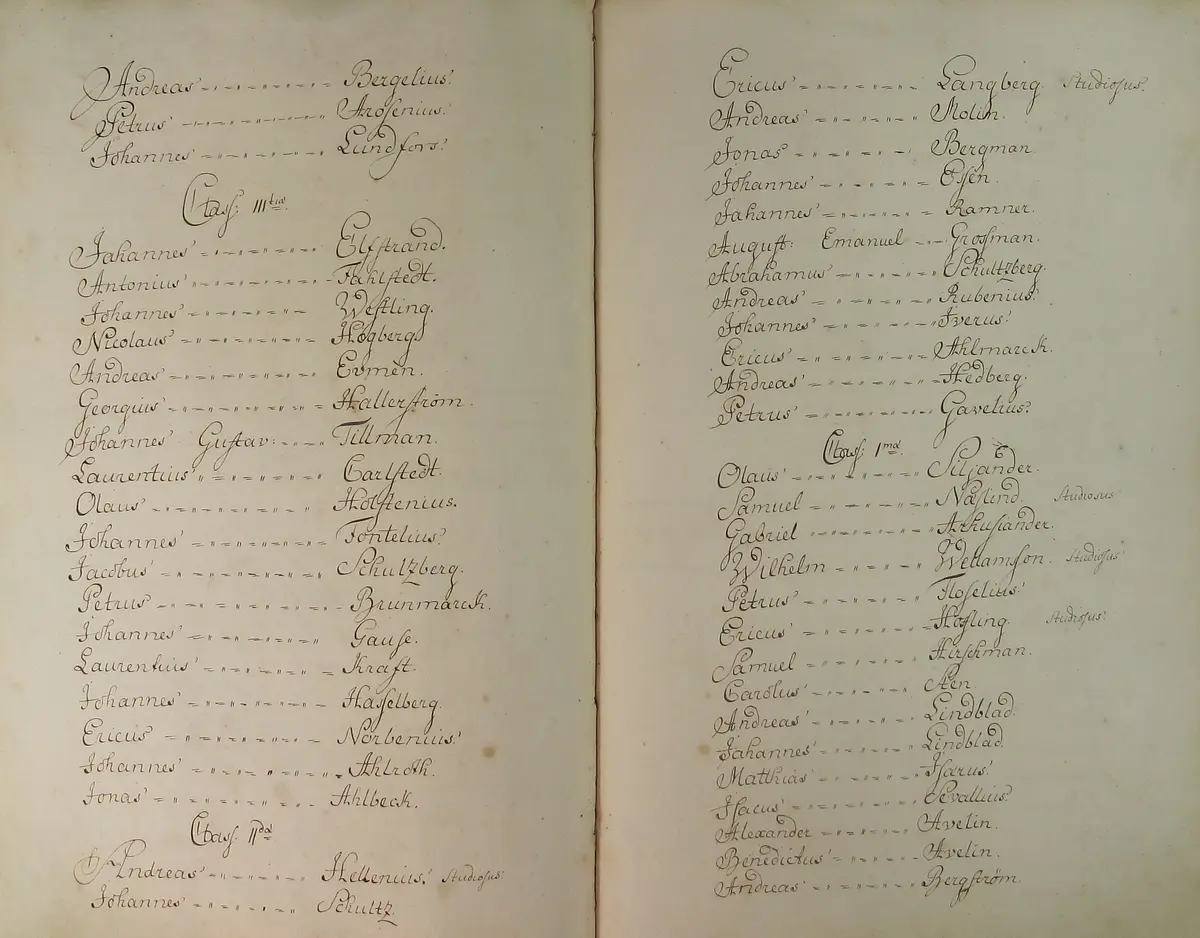 Andreas Bergelius.
Petrus Arosenius.
Johannes Lundfors.
Class: III tia.
Johannes Elfstrand.
Antonius Fahlstedt.
Johannes Westling.
Nicolaus Högberg
Andreas Evmèn.
Georgius Hallerström.
Johannes Gustav: Tillman.
Laurentius Carlstedt.
Olaus Holstenius.
Johannes Fontelius.
Jacobus Schultzberg.
Petrus Brunmarck.
Johannes Gause.
Laurentius Kraft.
Johannes Hasselberg.
Ericus Norbenius.
Johannes Ahlroth.
Jonas Ahlbeck.
Class: II da
Andreas Hellenius. Studiosus.
Johannes Schultz.
Ericus Langberg. Studiosus.
Andreas Molin.
Jonas Bergman
Johannes Esén.
Johannes Ramner.
August: Emanuel Grosman.
Abrahamus Schultzberg.
Andreas Rubenius.
Johannes Iverus.
Ericus Ahlmarck.
Andreas Hedberg.
Petrus Gavelius.
Class: I ma.
Olaus Siljander.
Samuel Näslind. Studiosus
Gabriel Arhusiander.
Wilhelm Wellamson. Studiosus
Petrus Floselius.
Ericus Hosling. Studiosus.
Samuel Hirschman.
Carolus Aén
Andreas Lindblad.
Johannes Lindblad.
Matthias Isærus.
Isacus Sevallius.
Alexander Avelin.
Benedictus Avelin.
Andreas Bergström.